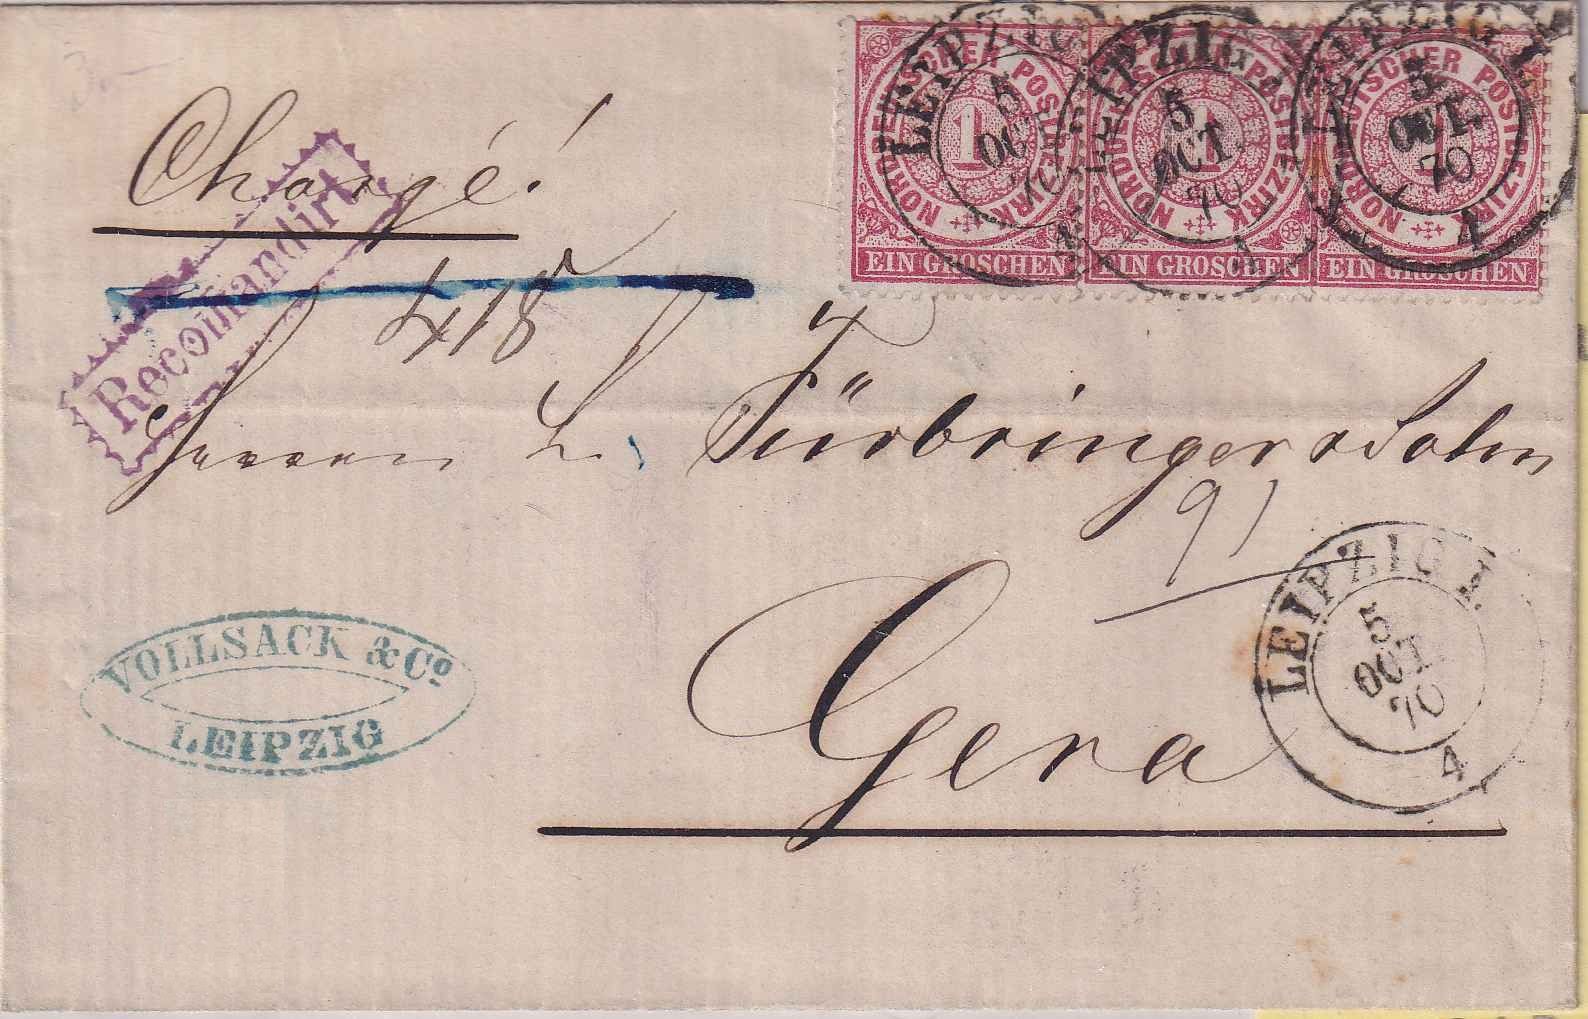 Chargé!
Recomandirt
418
NORDDEUTSCHER POSTBEZIRK
1
EIN GROSCHEN
NORDDEUTSCHER POSTBEZIRK
1
EIN GROSCHEN
NORDDEUTSCHER POSTBEZIRK
1
EIN GROSCHEN
LEIPZIG I.
5
OCT.
70
4
LEIPZIG I.
5
OCT.
70
4
LEIPZIG I.
5
OCT.
70
4
Herren L. Fürbringer & Sohn
91
Gera
LEIPZIG I.
5
OCT.
70
4
VOLLSACK & Co
LEIPZIG